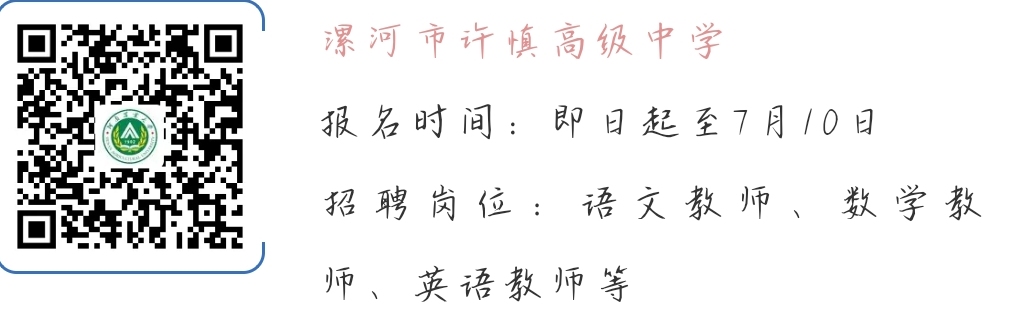 漯河市许慎高级中学
报名时间：即日起至7月10日
招聘岗位：语文教师、数学教
师、英语教师等